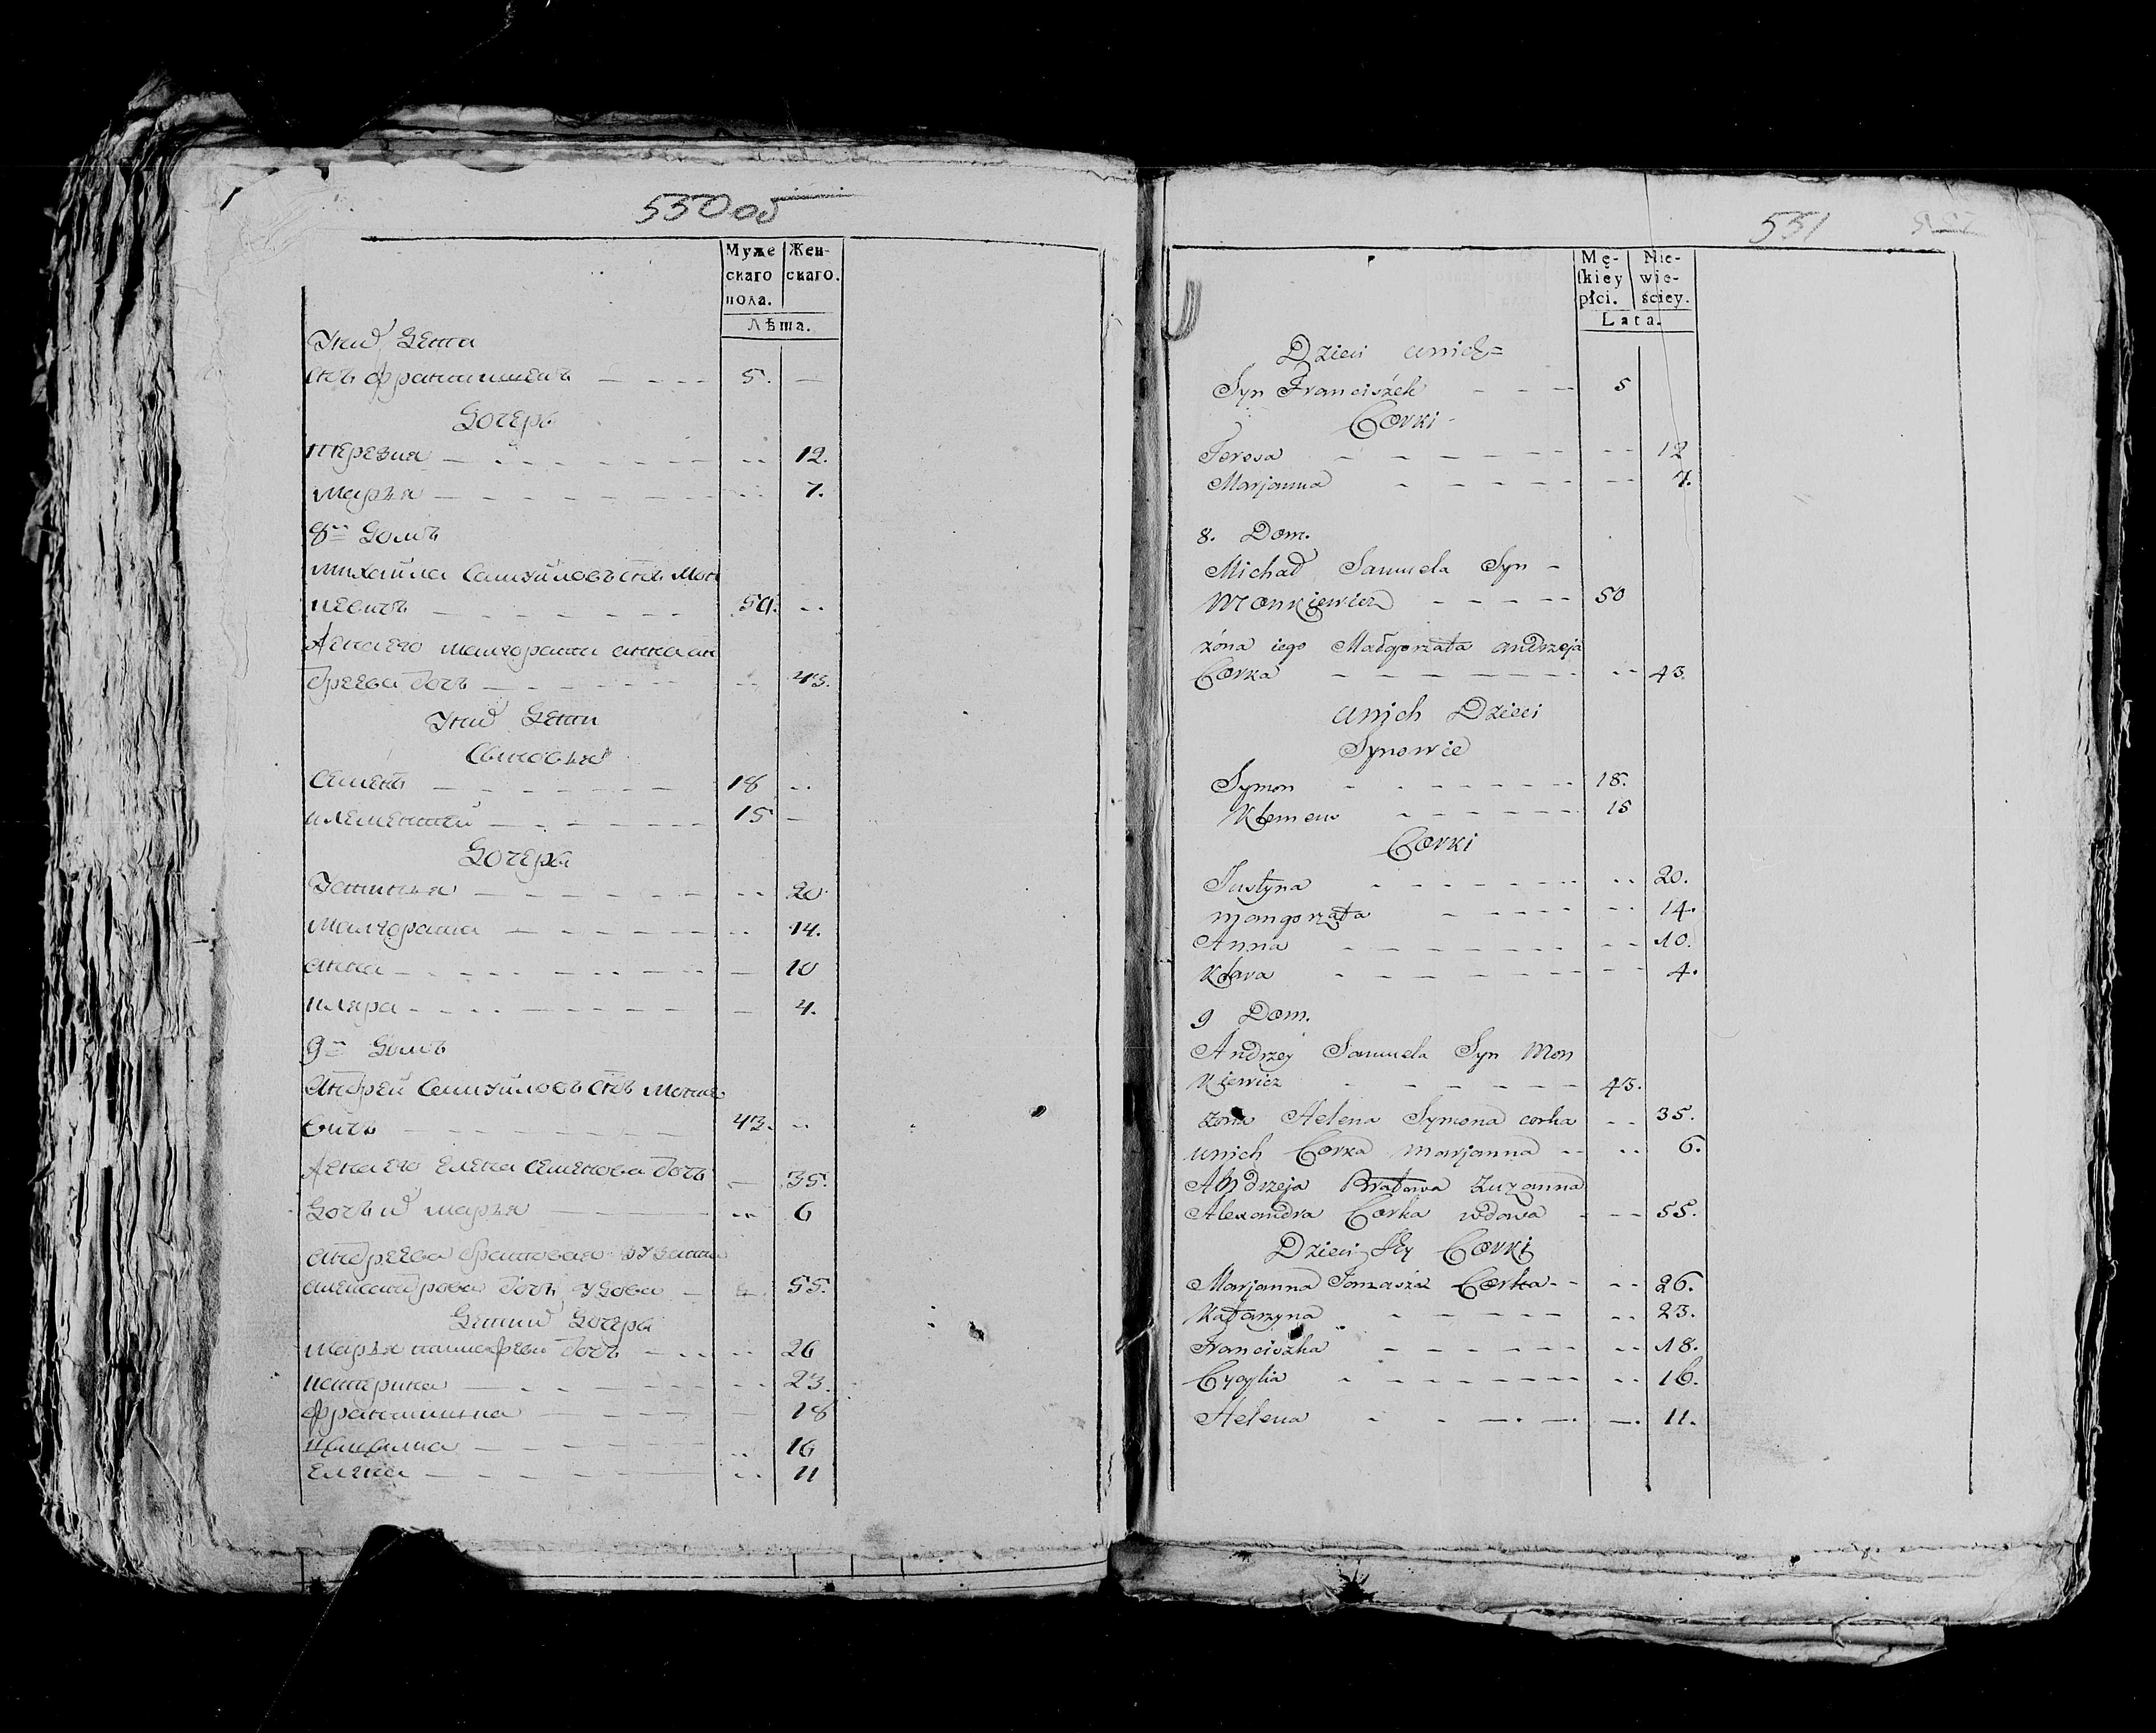 550 об
Муже
скаго
пола.
Жен-
скаго.
Лѣта.
Ихъ Дети
Снъ Францишекъ 5.
Дочери
Терезия 12.
Марья 7.
8й Домъ
Михайла Самуйловъ снъ Мон
кевичъ 50.
Жена его Малгората Анна Ан
дреева дочь 43.
Ихъ Дети
Сыновья
Семенъ 18
Клементей 15
Дочери
Устинья 20
Малгората 14.
Анна 10
Кляра 4.
9й Домъ
Андрей Самуйловъ снъ Монке
вичъ 43.
Жена его Елена Семенова дочь 35.
Дочь ихъ Марья 6
Андреева братовая Зузанна
Александрова дочь удова 55.
Дети ей Дочери
Марья Тимофеева дочь 26
Катерина 23.
Францишка 18
Цецилиа 16
Елена 11
551
Mę-
skiey
płci.
Nie-
wie-
ściey.
Lata.
Dzieci unich=
Syn Franciszek 5
Corki
Teresa 12
Marjanna 7.
8. Dom.
Michał Samuela Syn
Monkiewicz 50
żona iego Małgorzata andrzeja
Corka 43.
unich Dzieci
Synowie
Symon 18.
Klemens 15
Corki
Justyna 20.
mangorzata 14.
Anna 10.
Klara 4.
9 Dom.
Andrzey Samuela Syn Mon
Kiewicz 43.
żona Helena Symona corka 35.
unich Corka marjanna 6.
Andrzeja Bratowa Zuzanna
Alexandra Corka wdowa 55.
Dzieci Jey Corki
Marjanna Tomasza Corka 26.
Katarzyna 23.
Franciszka 18.
Cycylia 16.
Helena 11.